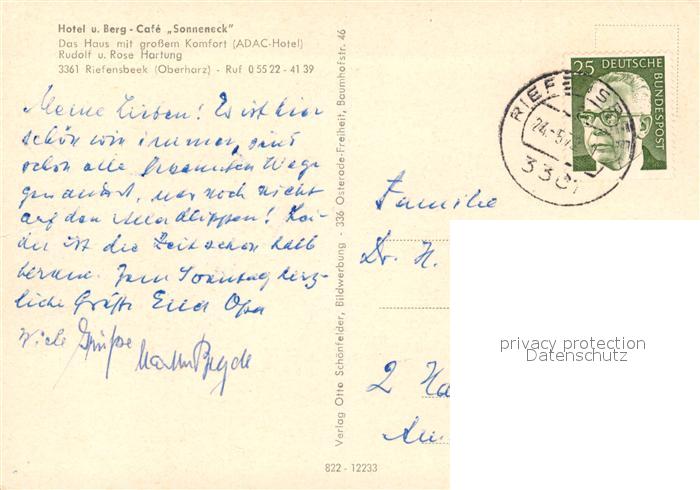 Hotel u. Berg - Café „Sonneneck"
Das Haus mit großem Komfort (ADAC-Hotel)
Rudolf u. Rose Hartung
3361 Riefensbeek (Oberharz) - Ruf 0 55 22 - 41 39
Meine Lieben! Es ist hier
schön wie immer, sind
schon alle bekannten Wege
gewandert, nur noch nicht
auf den
Lei-
der ist die Zeit schon halb
herum. Zum Sonntag herz-
liche Grüße Euer Opa
Viele Grüße
Verlag Otto Schönfelder, Bildwerbung - 336 Osterode-Freiheit, Baumhofstr. 46
822 - 12233
25 DEUTSCHE
BUNDESPOST
RIEFENSB
24.-5.7
3361
Familie
Dr. H.
2 Ha
privacy protection
Datenschutz